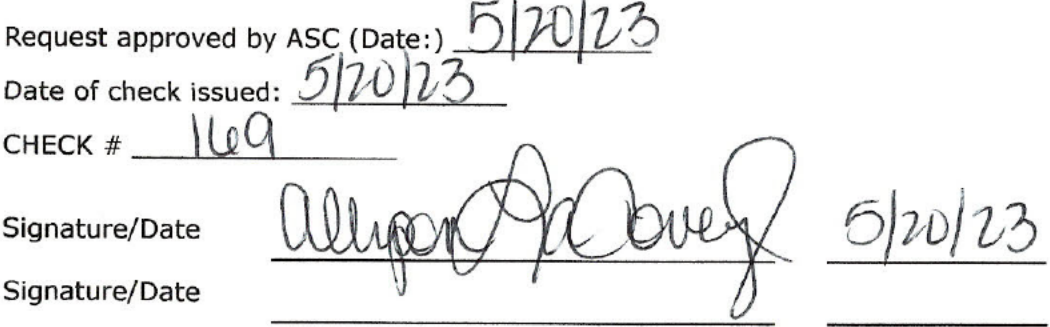 Request approved by ASC (Date:) 5/20/23
Date of check issued: 5/20/23
CHECK # 169
Signature/Date Allyson LaCovey 5/20/23
Signature/Date